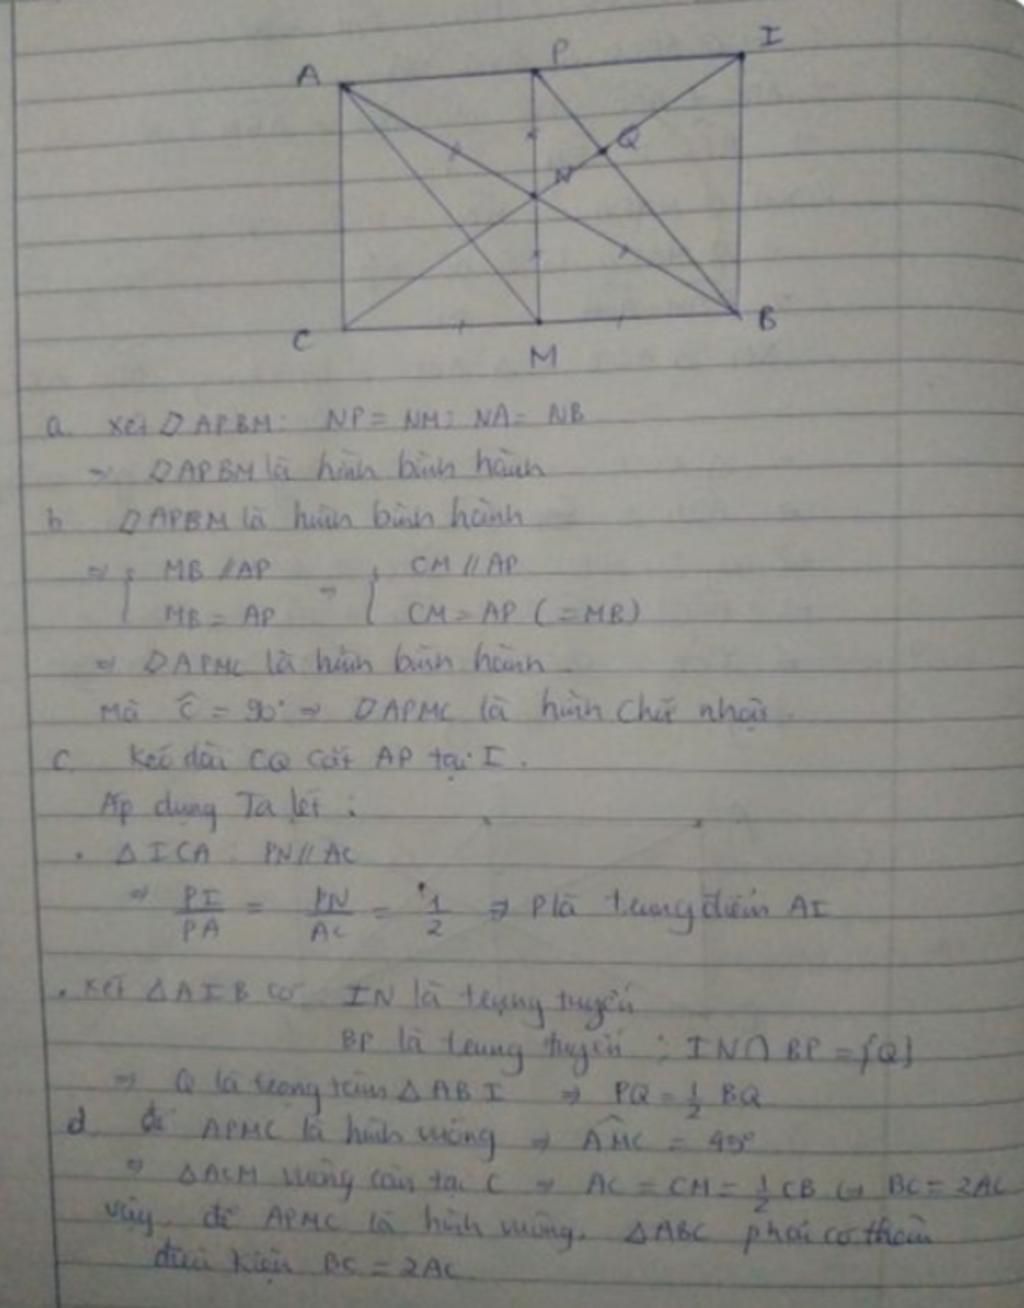 A
P
I
Q
N
C
M
B
a. Xét □APBM: NP = NM; NA = NB
⇒ □APBM là hình bình hành
b □APBM là hình bình hành
⇒ { MB // AP ⇒ { CM // AP
MB = AP CM = AP (= MB)
⇒ □APMC là hình bình hành.
Mà Ĉ = 90° ⇒ □APMC là hình chữ nhật.
c. Kéo dài CQ cắt AP tại I.
Áp dụng Ta lét:
. ΔICA: PN // AC
⇒ PI/PA = PN/AC = 1/2 ⇒ P là trung điểm AI
. Xét ΔAIB có IN là trung tuyến
BP là trung tuyến ; IN ∩ BP = {Q}
⇒ Q là trọng tâm ΔABI ⇒ PQ = 1/2 BQ
d. để APMC là hình vuông ⇒ AMC = 45°
⇒ ΔACM vuông cân tại C ⇒ AC = CM = 1/2 CB ⇔ BC = 2AC
vậy, để APMC là hình vuông, ΔABC phải có thêm
điều kiện BC = 2AC